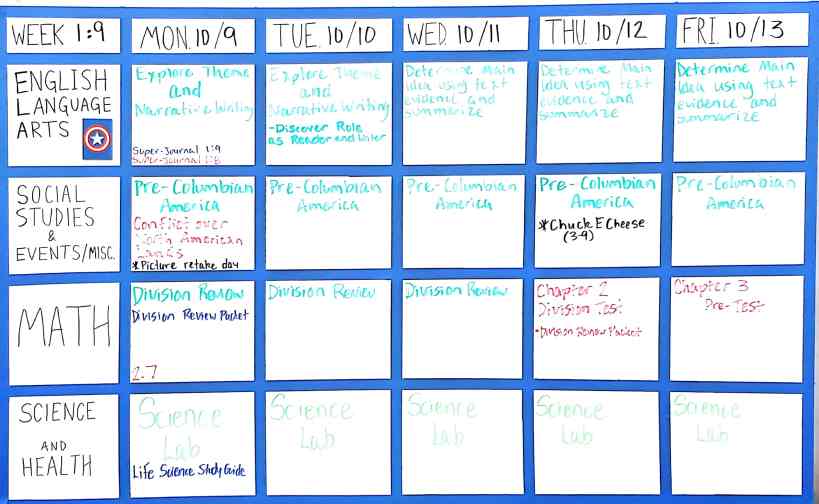 WEEK 1:9
MON. 10/9
TUE. 10/10
WED. 10/11
THU. 10/12
FRI. 10/13
ENGLISH
LANGUAGE
ARTS
Explore Theme
and
Narrative Writing
Super-Journal 1:9
Super-Journal 1:8
Explore Theme
and
Narrative Writing
-Discover Role
as Reader and
Determine Main
Idea using text
evidence and
summarize
Determine Main
Idea using text
evidence and
summarize
Determine Main
Idea using text
evidence and
summarize
SOCIAL
STUDIES
&
EVENTS/MISC.
Pre-Columbian
America
Conflict over
North American
Lands
*Picture retake day
Pre-Columbian
America
Pre-Columbian
America
Pre-Columbian
America
*Chuck E Cheese
(3-9)
Pre-Columbian
America
MATH
Division Review
Division Review Packet
2-7
Division Review
Division Review
Chapter 2
Division Test
•Division Review Packet
Chapter 3
Pre-Test
SCIENCE
AND
HEALTH
Science
Lab
Life Science Study Guide
Science
Lab
Science
Lab
Science
Lab
Science
Lab